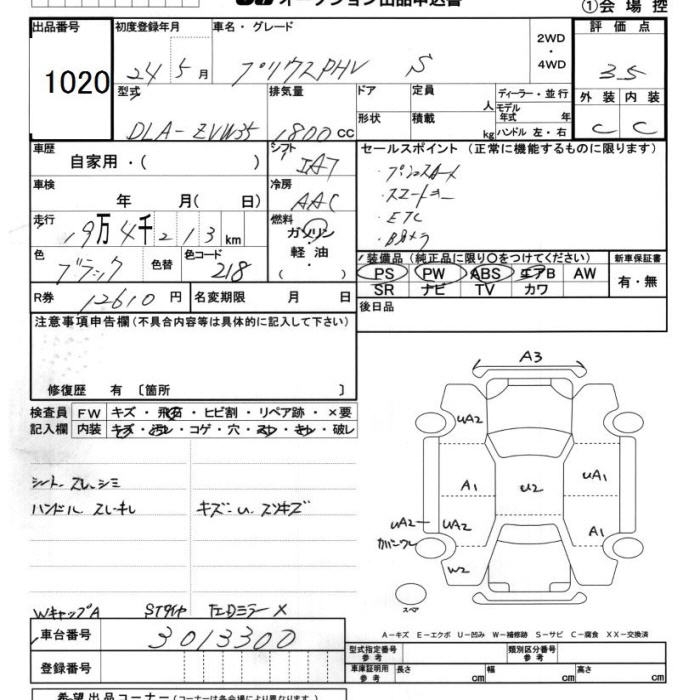 オークション出品申込書
①会場控
出品番号 1020
初度登録年月 24 5 月
車名・グレード プリウスPHV S
2WD・4WD
評価点 3.5
型式 DLA-ZVW35
排気量 1800 CC
ドア 形状
定員 人
積載 kg
ディーラー・並行
モデル年式 年
ハンドル 左・右
外装 内装
C C
車歴 自家用・( )
シフト IAT
セールスポイント (正常に機能するものに限ります)
・プッシュスタート
・スマートキー
・ETC
・Bカメラ
車検 年 月( 日)
冷房 AAC
走行 19万4千213km
燃料 ガソリン・軽油・( )
色 ブラック 色替 色コード 218
装備品 (純正品に限り○をつけてください)
新車保証書
PS PW ABS エアB AW
有・無
SR ナビ TV カワ
R券 12610 円 名変期限 月 日
後日品
注意事項申告欄(不具合内容等は具体的に記入して下さい)
修復歴 有 〔箇所 〕
検査員 FW キズ・飛石・ヒビ割・リペア跡・×要
記入欄 内装 キズ・汚レ・コゲ・穴・スレ・キレ・破レ
シート スレ、シミ
ハンドル スレ・キレ キズ・U、スリキズ
WキャップA STタイヤ 左Dミラー X
A3
UA2
A1 U2 UA1
UA2 UA2 A1
W2
スペア
A-キズ E-エクボ U-凹み W-補修跡 S-サビ C-腐食 XX-交換済
車台番号 3013300
登録番号
型式指定番号 参考 類別区分番号 参考
車庫証明用 参考 長さ cm 幅 cm 高さ cm
希望出品コーナー (コーナーは各会場により異なります)